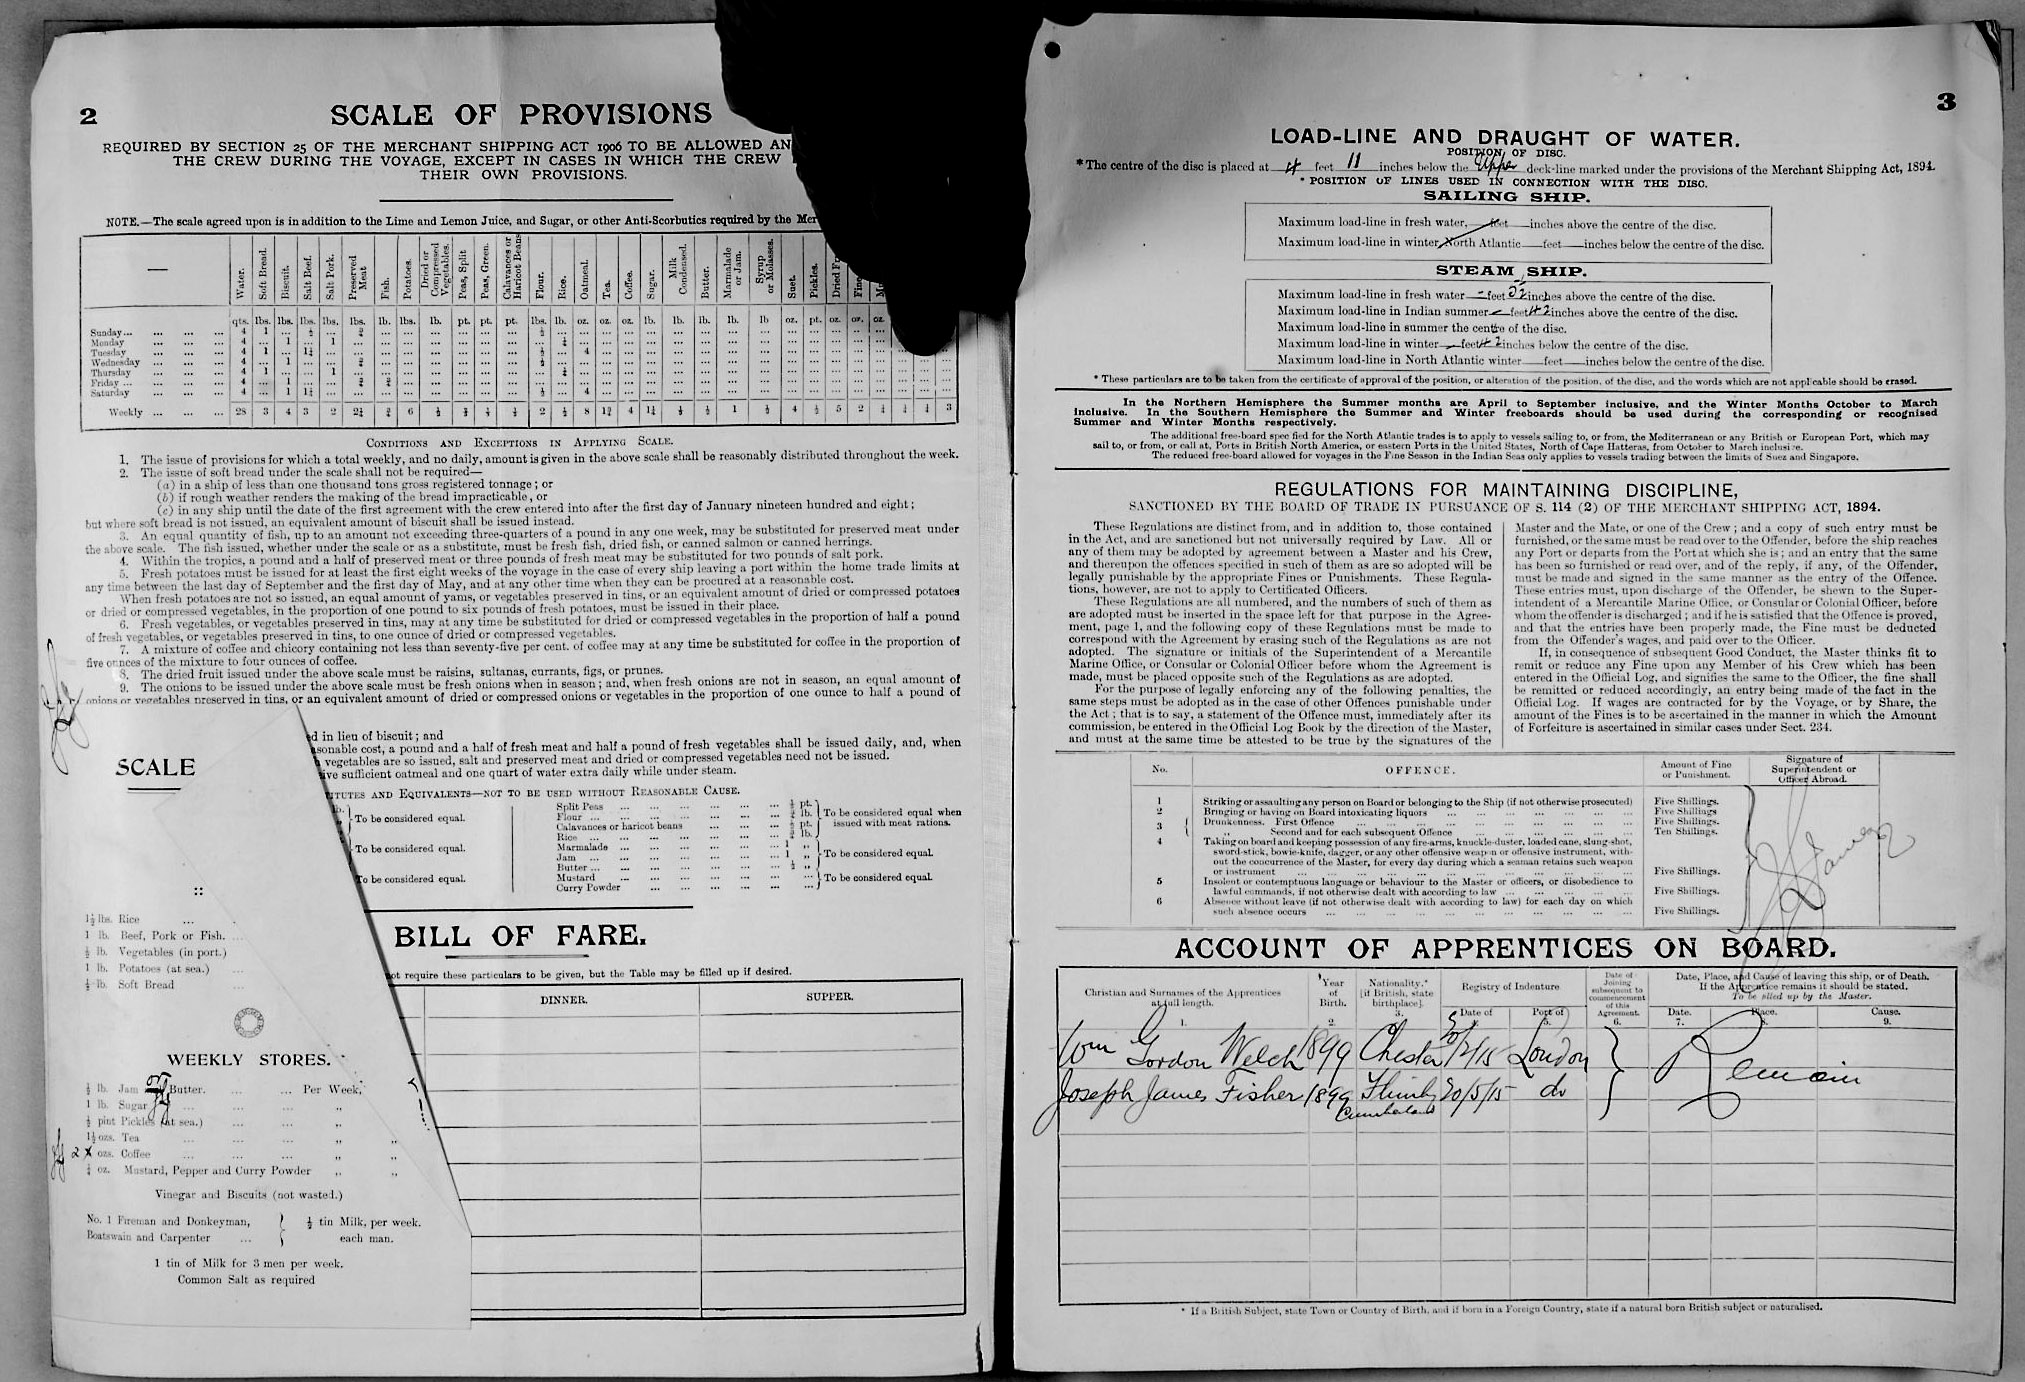 2
SCALE OF PROVISIONS
REQUIRED BY SECTION 25 OF THE MERCHANT SHIPPING ACT 1906 TO BE ALLOWED AN
THE CREW DURING THE VOYAGE, EXCEPT IN CASES IN WHICH THE CREW
THEIR OWN PROVISIONS.
NOTE.—The scale agreed upon is in addition to the Lime and Lemon Juice, and Sugar, or other Anti-Scorbutics required by the Mer
Water. Soft Bread. Biscuit. Salt Beef. Salt Pork. Preserved Meat Fish. Potatoes. Dried or Compressed Vegetables. Peas, Split Peas, Green. Calavances or Haricot Beans Flour. Rice. Oatmeal. Tea. Coffee. Sugar. Milk Condensed. Butter. Marmalade or Jam. Syrup or Molasses. Suet. Pickles. Dried Fine
qts. lbs. lbs. lbs. lbs. lbs. lb. lbs. lb. pt. pt. pt. lbs. lb. oz. oz. oz. lb. lb. lb. lb. lb oz. pt. oz. oz. oz.
Sunday... 4 1 ... ½
Monday 4 ... 1 ... 1
Tuesday 4 1 ... 1¼ 4
Wednesday 4 ... 1
Thursday 4 1 ... ... 1
Friday ... 4 ... 1
Saturday 4 ... 1 1¼ 4
Weekly 28 3 4 3 2 2¼ ¾ 6 ½ 2 ½ 8 1¾ 4 1¼ 1 ½ 4 ½ 5 2 3
CONDITIONS AND EXCEPTIONS IN APPLYING SCALE.
1. The issue of provisions for which a total weekly, and no daily, amount is given in the above scale shall be reasonably distributed throughout the week.
2. The issue of soft bread under the scale shall not be required—
(a) in a ship of less than one thousand tons gross registered tonnage; or
(b) if rough weather renders the making of the bread impracticable, or
(c) in any ship until the date of the first agreement with the crew entered into after the first day of January nineteen hundred and eight;
but where soft bread is not issued, an equivalent amount of biscuit shall be issued instead.
3. An equal quantity of fish, up to an amount not exceeding three-quarters of a pound in any one week, may be substituted for preserved meat under
the above scale. The fish issued, whether under the scale or as a substitute, must be fresh fish, dried fish, or canned salmon or canned herrings.
4. Within the tropics, a pound and a half of preserved meat or three pounds of fresh meat may be substituted for two pounds of salt pork.
5. Fresh potatoes must be issued for at least the first eight weeks of the voyage in the case of every ship leaving a port within the home trade limits at
any time between the last day of September and the first day of May, and at any other time when they can be procured at a reasonable cost.
When fresh potatoes are not so issued, an equal amount of yams, or vegetables preserved in tins, or an equivalent amount of dried or compressed potatoes
or dried or compressed vegetables, in the proportion of one pound to six pounds of fresh potatoes, must be issued in their place.
6. Fresh vegetables, or vegetables preserved in tins, may at any time be substituted for dried or compressed vegetables in the proportion of half a pound
of fresh vegetables, or vegetables preserved in tins, to one ounce of dried or compressed vegetables.
7. A mixture of coffee and chicory containing not less than seventy-five per cent. of coffee may at any time be substituted for coffee in the proportion of
five ounces of the mixture to four ounces of coffee.
8. The dried fruit issued under the above scale must be raisins, sultanas, currants, figs, or prunes.
9. The onions to be issued under the above scale must be fresh onions when in season; and, when fresh onions are not in season, an equal amount of
onions or vegetables preserved in tins, or an equivalent amount of dried or compressed onions or vegetables in the proportion of one ounce to half a pound of
ed in lieu of biscuit; and
asonable cost, a pound and a half of fresh meat and half a pound of fresh vegetables shall be issued daily, and, when
vegetables are so issued, salt and preserved meat and dried or compressed vegetables need not be issued.
ive sufficient oatmeal and one quart of water extra daily while under steam.
TUTES AND EQUIVALENTS—NOT TO BE USED WITHOUT REASONABLE CAUSE.
To be considered equal.
To be considered equal.
To be considered equal.
Split Peas
Flour ...
Calavances or haricot beans
Rice ...
To be considered equal when
issued with meat rations.
Marmalade ... 1 "
Jam ... 1 "
Butter ... ½ "
To be considered equal.
Mustard
Curry Powder
To be considered equal.
BILL OF FARE.
ot require these particulars to be given, but the Table may be filled up if desired.
DINNER. SUPPER.
SCALE
::
1½ lbs. Rice
1 lb. Beef, Pork or Fish.
½ lb. Vegetables (in port.)
1 lb. Potatoes (at sea.)
½ lb. Soft Bread
WEEKLY STORES.
½ lb. Jam or Butter. ... Per Week,
1 lb. Sugar ... "
½ pint Pickles (at sea.) ... "
1½ ozs. Tea ... " "
2 ozs. Coffee ... " "
¼ oz. Mustard, Pepper and Curry Powder " "
Vinegar and Biscuits (not wasted.)
No. 1 Fireman and Donkeyman,
Boatswain and Carpenter ...
½ tin Milk, per week.
each man.
1 tin of Milk for 3 men per week.
Common Salt as required
3
LOAD-LINE AND DRAUGHT OF WATER.
POSITION OF DISC.
*The centre of the disc is placed at 4 feet 11 inches below the Upper deck-line marked under the provisions of the Merchant Shipping Act, 1894.
* POSITION OF LINES USED IN CONNECTION WITH THE DISC.
SAILING SHIP.
Maximum load-line in fresh water, feet inches above the centre of the disc.
Maximum load-line in winter North Atlantic feet inches below the centre of the disc.
STEAM SHIP.
Maximum load-line in fresh water — feet 5½ inches above the centre of the disc.
Maximum load-line in Indian summer — feet 4½ inches above the centre of the disc.
Maximum load-line in summer the centre of the disc.
Maximum load-line in winter — feet 4½ inches below the centre of the disc.
Maximum load-line in North Atlantic winter — feet — inches below the centre of the disc.
* These particulars are to be taken from the certificate of approval of the position, or alteration of the position, of the disc, and the words which are not applicable should be erased.
In the Northern Hemisphere the Summer months are April to September inclusive, and the Winter Months October to March
inclusive. In the Southern Hemisphere the Summer and Winter freeboards should be used during the corresponding or recognised
Summer and Winter Months respectively.
The additional free-board specified for the North Atlantic trades is to apply to vessels sailing to, or from, the Mediterranean or any British or European Port, which may
sail to, or from, or call at, Ports in British North America, or eastern Ports in the United States, North of Cape Hatteras, from October to March inclusive.
The reduced free-board allowed for voyages in the Fine Season in the Indian Seas only applies to vessels trading between the limits of Suez and Singapore.
REGULATIONS FOR MAINTAINING DISCIPLINE,
SANCTIONED BY THE BOARD OF TRADE IN PURSUANCE OF S. 114 (2) OF THE MERCHANT SHIPPING ACT, 1894.
These Regulations are distinct from, and in addition to, those contained
in the Act, and are sanctioned but not universally required by Law. All or
any of them may be adopted by agreement between a Master and his Crew,
and thereupon the offences specified in such of them as are so adopted will be
legally punishable by the appropriate Fines or Punishments. These Regula-
tions, however, are not to apply to Certificated Officers.
These Regulations are all numbered, and the numbers of such of them as
are adopted must be inserted in the space left for that purpose in the Agree-
ment, page 1, and the following copy of these Regulations must be made to
correspond with the Agreement by erasing such of the Regulations as are not
adopted. The signature or initials of the Superintendent of a Mercantile
Marine Office, or Consular or Colonial Officer before whom the Agreement is
made, must be placed opposite such of the Regulations as are adopted.
For the purpose of legally enforcing any of the following penalties, the
same steps must be adopted as in the case of other Offences punishable under
the Act; that is to say, a statement of the Offence must, immediately after its
commission, be entered in the Official Log Book by the direction of the Master,
and must at the same time be attested to be true by the signatures of the
Master and the Mate, or one of the Crew; and a copy of such entry must be
furnished, or the same must be read over to the Offender, before the ship reaches
any Port or departs from the Port at which she is; and an entry that the same
has been so furnished or read over, and of the reply, if any, of the Offender,
must be made and signed in the same manner as the entry of the Offence.
These entries must, upon discharge of the Offender, be shewn to the Super-
intendent of a Mercantile Marine Office, or Consular or Colonial Officer, before
whom the offender is discharged; and if he is satisfied that the Offence is proved,
and that the entries have been properly made, the Fine must be deducted
from the Offender's wages, and paid over to the Officer.
If, in consequence of subsequent Good Conduct, the Master thinks fit to
remit or reduce any Fine upon any Member of his Crew which has been
entered in the Official Log, and signifies the same to the Officer, the fine shall
be remitted or reduced accordingly, an entry being made of the fact in the
Official Log. If wages are contracted for by the Voyage, or by Share, the
amount of the Fines is to be ascertained in the manner in which the Amount
of Forfeiture is ascertained in similar cases under Sect. 234.
No. OFFENCE. Amount of Fine or Punishment. Signature of Superintendent or Officer Abroad.
1 Striking or assaulting any person on Board or belonging to the Ship (if not otherwise prosecuted) Five Shillings.
2 Bringing or having on Board intoxicating liquors ... Five Shillings.
3 Drunkenness. First Offence ... Five Shillings.
" Second and for each subsequent Offence ... Ten Shillings.
4 Taking on board and keeping possession of any fire-arms, knuckle-duster, loaded cane, slung-shot,
sword-stick, bowie-knife, dagger, or any other offensive weapon or offensive instrument, with-
out the concurrence of the Master, for every day during which a seaman retains such weapon
or instrument ... Five Shillings.
5 Insolent or contemptuous language or behaviour to the Master or officers, or disobedience to
lawful commands, if not otherwise dealt with according to law ... Five Shillings.
6 Absence without leave (if not otherwise dealt with according to law) for each day on which
such absence occurs ... Five Shillings.
ACCOUNT OF APPRENTICES ON BOARD.
Christian and Surnames of the Apprentices at full length. 1.
Year of Birth. 2.
Nationality.* [if British, state birthplace]. 3.
Registry of Indenture. Date of 4. Port of 5.
Date of Joining subsequent to commencement of this Agreement. 6.
Date, Place, and Cause of leaving this ship, or of Death.
If the Apprentice remains it should be stated.
To be filled up by the Master.
Date. 7. Place. 8. Cause. 9.
Wm Gordon Welch 1899 Chester London
Joseph James Fisher 1899 Flimby Cumberland 20/5/15 do
Remain
* If a British Subject, state Town or Country of Birth, and if born in a Foreign Country, state if a natural born British subject or naturalised.